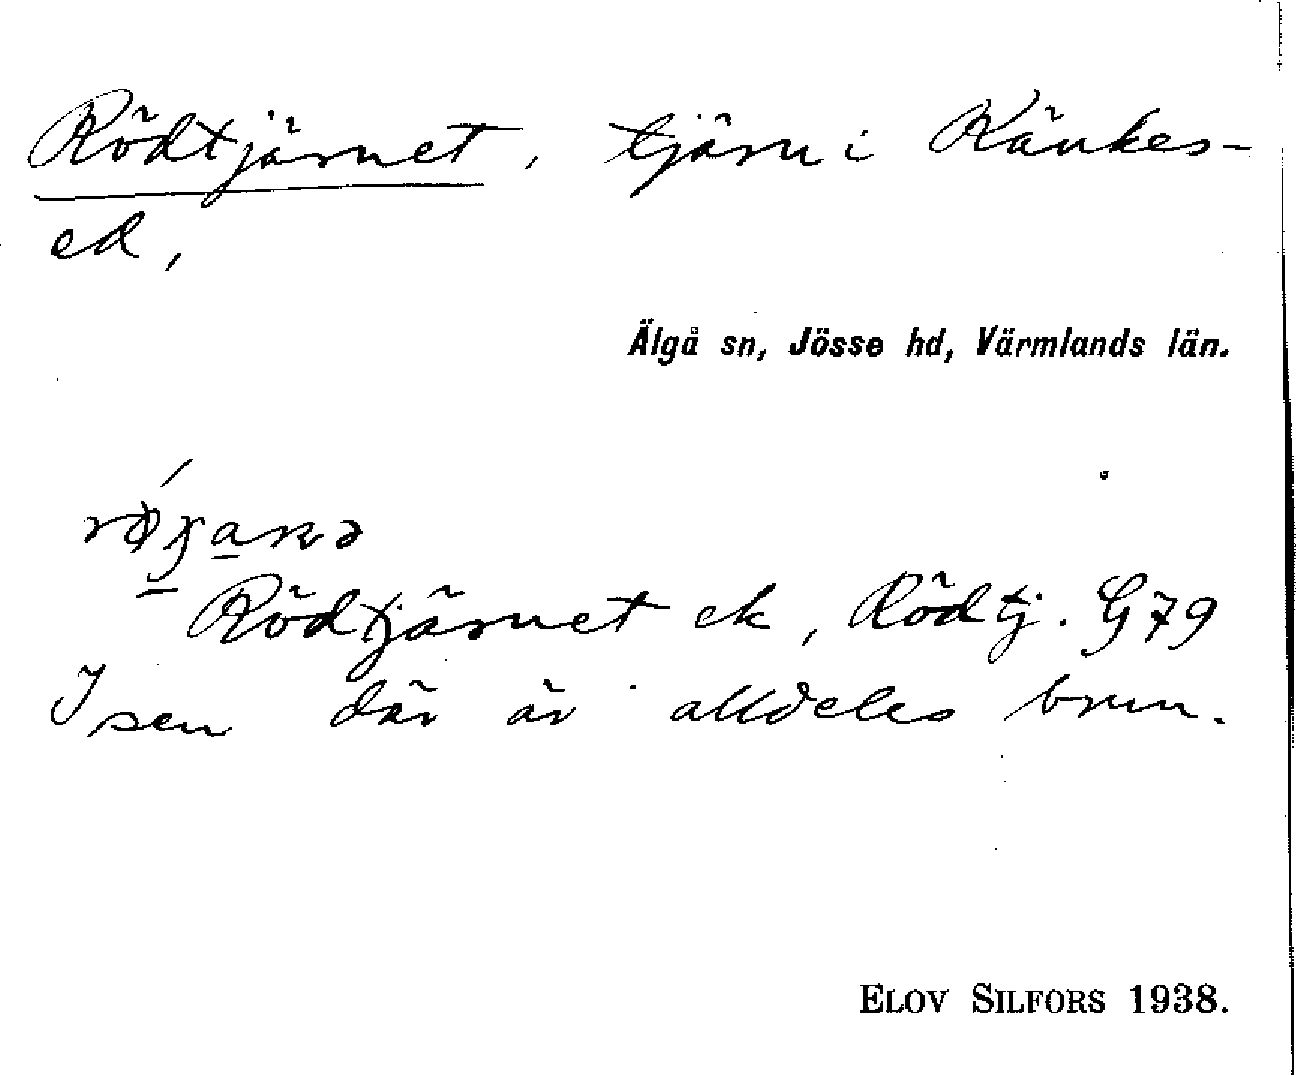 Rödtjärnet, tjärn i Känkes-
ed,
Älgå sn, Jösse hd, Värmlands län.
Rödtjärnet ek, Rödtj. G79
Isen där är alldeles brun.
ELOV SILFORS 1938.